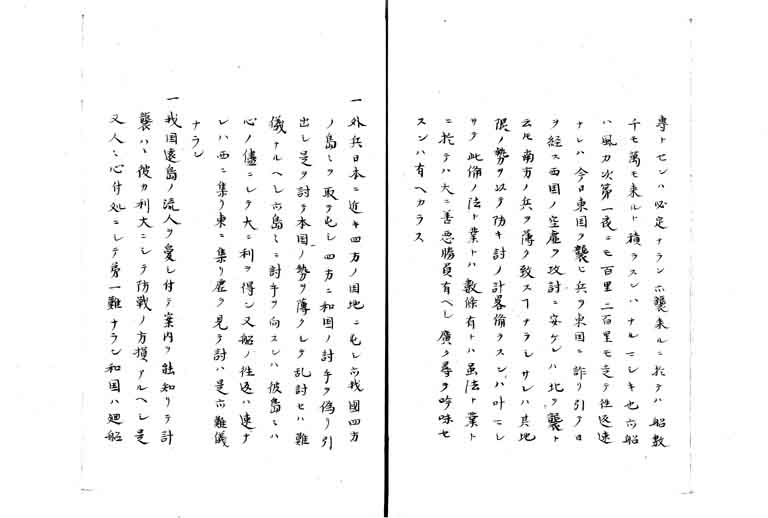 専トセンハ必定ナラン亦襲来ルニ於テハ船数
千モ萬モ来ルト積ラスンハナルヘシキ也亦船
ハ風力次第一夜ニモ百里二百里モ走テ往返速
ナレハ今日東国ヲ襲ヒ兵ヲ東国ニ詐リ引ク日
ヲ経ス西国ノ空虚ヲ攻討ニ安ケレハ北ヲ襲ト
云ヒ南方ノ兵ヲ薄ク致ス丁ナラレサレハ其地
限ノ勢ヲ以テ防キ討ノ計畧備ラスンハ叶ニシ
サテ此備ノ法ト業トハ数條有トハ虽法ト業ト
ニ於テハ大ニ善悪勝負有ヘレ廣ク尋テ吟味セ
スンハ有ヘカラス
一外兵日本ニ近キ四方ノ因地ニ屯レ亦我國四方
ノ島ミヲ取テ屯レ四方ニ和国ノ討手ヲ偽リ引
出レ是ヲ討テ本国ノ勢ヲ薄クレテ乱討セハ難
儀タルヘレ亦島ミニ討手ヲ向スレハ彼島ミハ
心ノ儘ニレテ大ニ利ヲ得ン又船ノ往返ハ速ナ
レハ西ニ集リ東ニ集リ虚ヲ見テ討ハ是亦難儀
ナラン
一我国遠島ノ流人ヲ愛レ付テ案内ヲ能知リテ計
襲ハヽ彼カ利大ニレテ防戦ノ方損アルヘレ是
又人ミ心付処ニレテ第一難ナラン和国ハ廻船